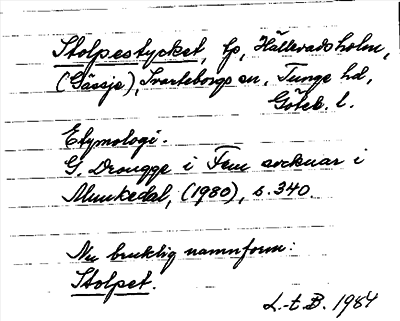 Stolpestycket, lp, Hällevadsholm,
(Gässje), Svarteborgs sn, Tunge hd,
Göteb. l.
Etymologi.
G. Drougge i Fem socknar i
Munkedal, (1980), s. 340.
Nu bruklig namnform:
Stolpet.
L-t B. 1984